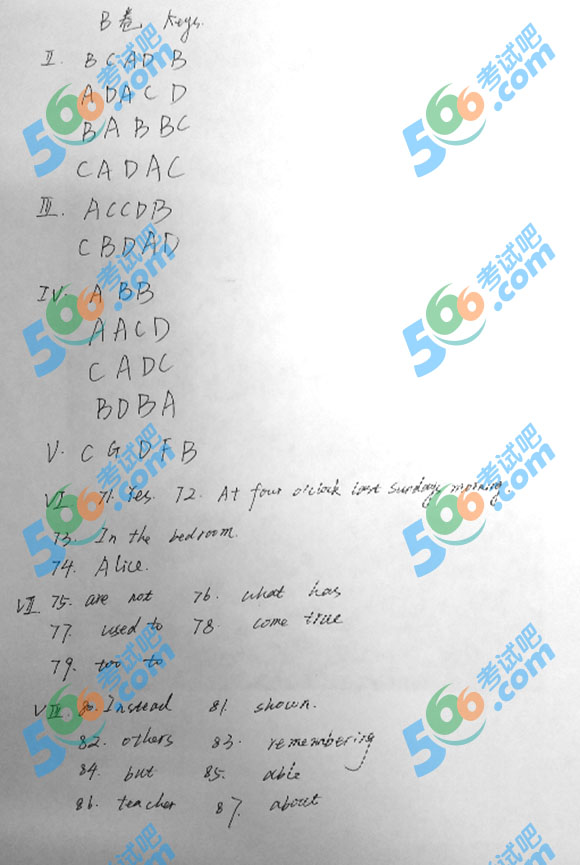 B卷 Keys.
II. BCADB
ADACD
BABBC
CADAC
III. ACCDB
CBDAD
IV. ABB
AACD
CADC
BDBA
V. CGDFB
VI 71. Yes. 72. At four o'clock last Sunday morning.
73. In the bedroom.
74. Alice.
VII 75. are not 76. what has
77. used to 78. come true
79. too to
VIII 80. Instead 81. shown.
82. others 83. remembering
84. but 85. able
86. teacher 87. about
566考试吧.com
566考试吧.com
566考试吧.com
566考试吧.com
566考试吧.com
566考试吧.com
566考试吧.com
566考试吧.com